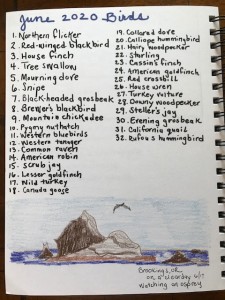 June 2020 Birds
1. Northern flicker
2. Red-winged blackbird
3. House finch
4. Tree swallow
5. Mourning dove
6. Snipe
7. Black-headed grosbeak
8. Brewer's blackbird
9. Mountain chickadee
10. Pygmy nuthatch
11. Western bluebirds
12. Western tanager
13. Common raven
14. American robin
15. Scrub jay
16. Lesser goldfinch
17. Wild turkey
18. Canada goose
19. Collared dove
20. Calliope hummingbird
21. Hairy woodpecker
22. Starling
23. Cassin's finch
24. American goldfinch
25. Red crossbill
26. House wren
27. Turkey vulture
28. Downy woodpecker
29. Steller's jay
30. Evening grosbeak
31. California quail
32. Rufous hummingbird
Brookings, OR
on a clear day
Watching an osprey